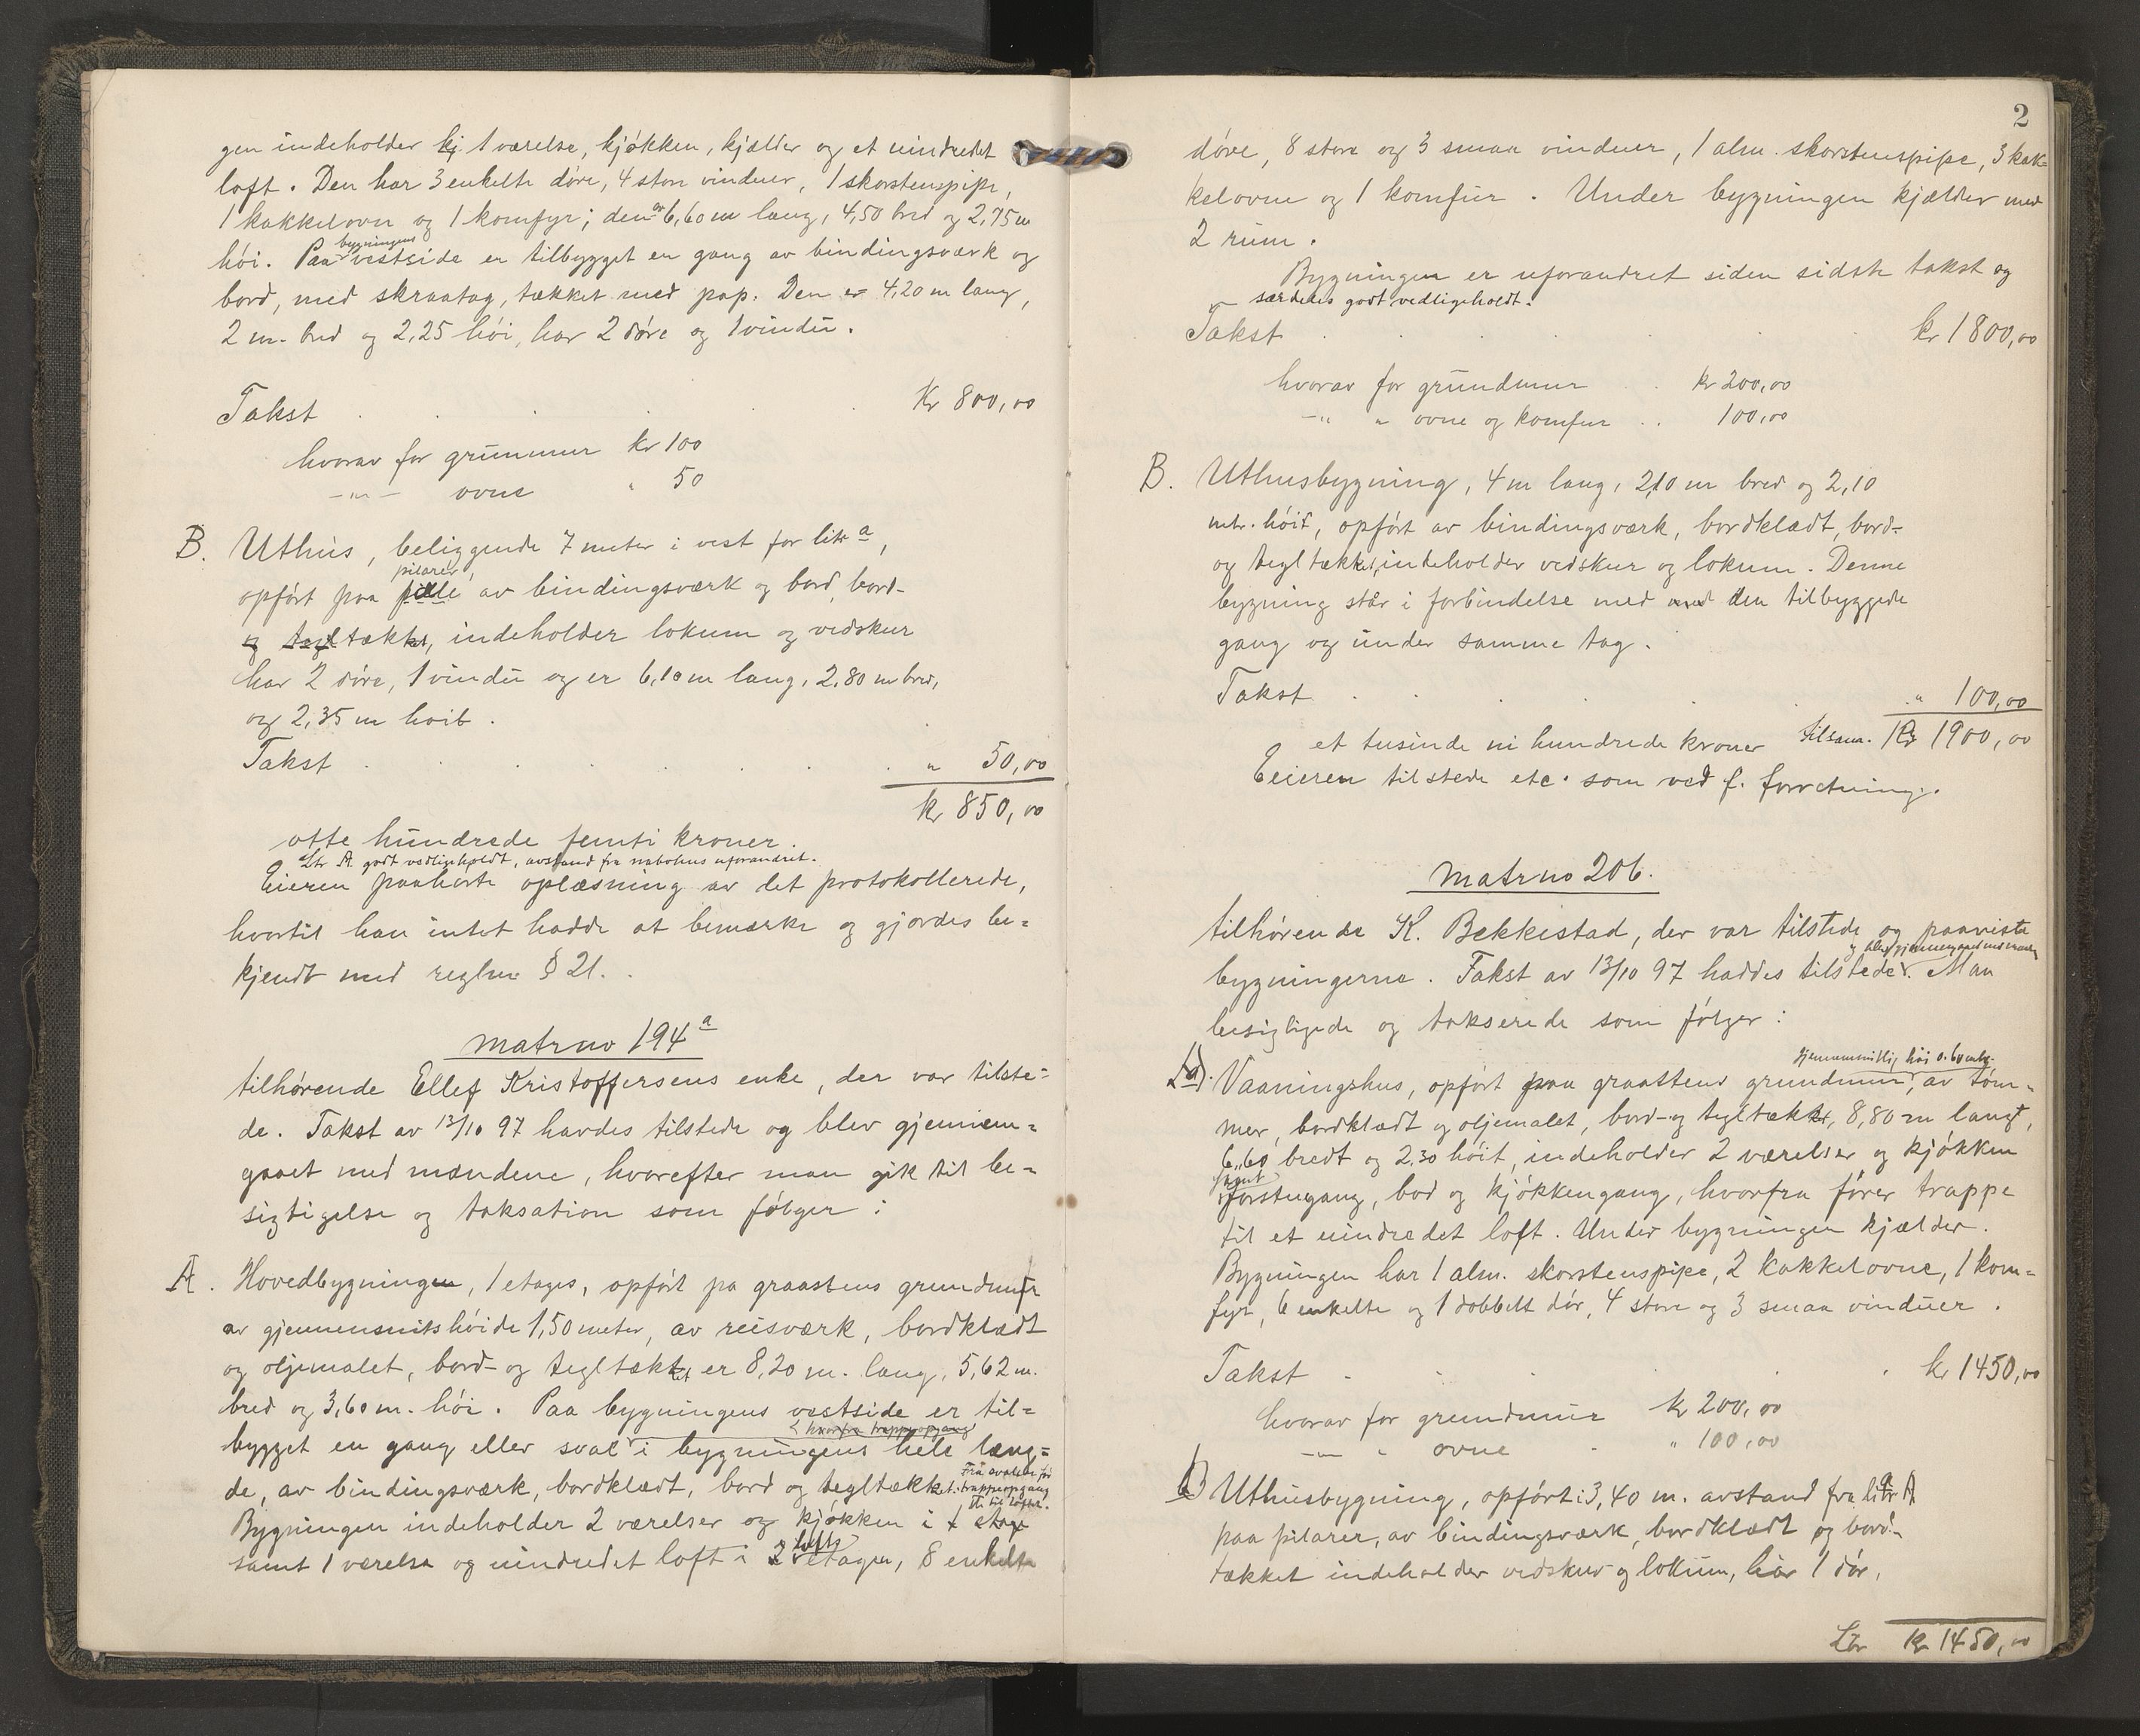 gen indeholder kj 1 værelse, kjøkken, kjælder og et uindredet
loft. Den har 3 enkelte døre, 4 store vinduer, 1 skorstenspipe,
1 kakkelovn og 1 komfyr; den er 6,60 m lang, 4,50 bred og 2,75 m
høi. Paa bygningens vestside er tilbygget en gang av bindingsværk og
bord, med skraatag, tækket med pap. Den er 4,20 m lang,
2 m. bred og 2,25 høi, har 2 døre og 1 vindu.
Takst Kr 800,00
hvorav for grunmur kr 100
-"- ovne " 50
B. Uthus, beliggende 7 meter i vest for litr a,
opført paa pæle pilarer av bindingsværk og bord, bord-
og tegltækket, indeholder lokum og vedskur
har 2 døre, 1 vindu og er 6,10 m lang, 2,80 m bred,
og 2,35 m høit.
Takst " 50,00
kr 850,00
otte hundrede femti kroner.
Ltr A. godt vedlikeholdt, avstand fra nabohus uforandret.
Eieren paahørte oplæsning av det protokollerede,
hvortil han intet hadde at bemærke og gjordes be=
kjendt med reglene § 21.
Matrno 194 a
tilhørende Ellef Kristoffersens enke, der var tilste=
de. Takst av 13/10 97 havdes tilstede og blev gjennem=
gaaet med mændene, hvorefter man gik til be=
sigtigelse og taksation som følger:
A. Hovedbygningen, 1 etages, opført pa graastens grundmur
av gjennemsnitshøide 1,50 meter, av reisværk, bordklædt
og oljemalet, bord- og tegltækket er 8,20 m. lang, 5,62 m.
bred og 3,60 m. høi. Paa bygningens vestside er til=
hvorfra trappeopgang
bygget en gang eller sval i bygningens hele læng=
de, av bindingsværk, bordklædt, bord og tegltækket. Fra svalen før trappeopgang til loftet.
Bygningen indeholder 2 værelser og kjøkken i 1 etage
samt 1 værelse og uindredet loft i 2 lofts etagen, 8 enkelte
2
døre, 8 store og 3 smaa vinduer, 1 alm. skorstenspipe, 3 kak=
kelovne og 1 komfur. Under bygningen kjælder med
2 rum.
Bygningen er uforandret siden sidste takst og
særdeles godt vedligeholdt.
Takst kr 1800,00
hvorav for grundmur kr 200,00
-" " ovne og komfur 100,00
B. Uthusbygning, 4 m lang, 2,10 m bred og 2,10
mtr. høit, opført av bindingsværk, bordklædt, bord-
og tegltækket, indeholder vedskur og lokum. Denne
bygning står i forbindelse med med den tilbyggede
gang og under samme tag.
Takst " 100,00
et tusinde ni hundrede kroner tilsam. Kr 1900,00
Eieren tilstede etc. som ved f. forretning.
Matrno 206.
tilhørende K. Bekkestad, der var tilstede og paaviste
og blev gjennemgaaet med mændene
bygningerne. Takst av 13/10 97 haddes tilstede. Man
besigtigede og takserede som følger:
gjennemsnitlig høi 0.60 mtr.
La) Vaaningshus, opført paa graastens grundmur, av tøm=
mer, bordklædt og oljemalet, bord- og tegltækket, 8,80 m langt,
6,60 bredt og 2,30 høit, indeholder 2 værelser og kjøkken
samt forstugang, bod og kjøkkengang, hvorfra fører trappe
til et uindredet loft. Under bygningen kjælder.
Bygningen har 1 alm. skorstenspipe, 2 kakkelovne, 1 kom=
fyr, 6 enkelte og 1 dobbelt dør, 4 store og 3 smaa vinduer.
Takst kr 1450,00
hvorav for grundmur kr 200,00
-"- " ovne " 100,00
b) Uthusbygning, opført i 3,40 m. avstand fra litr A
paa pilarer, av bindingsværk, bordklædt og bord-
tækket indeholder vedskur og lokum, har 1 dør,
Ltr kr 1450,00